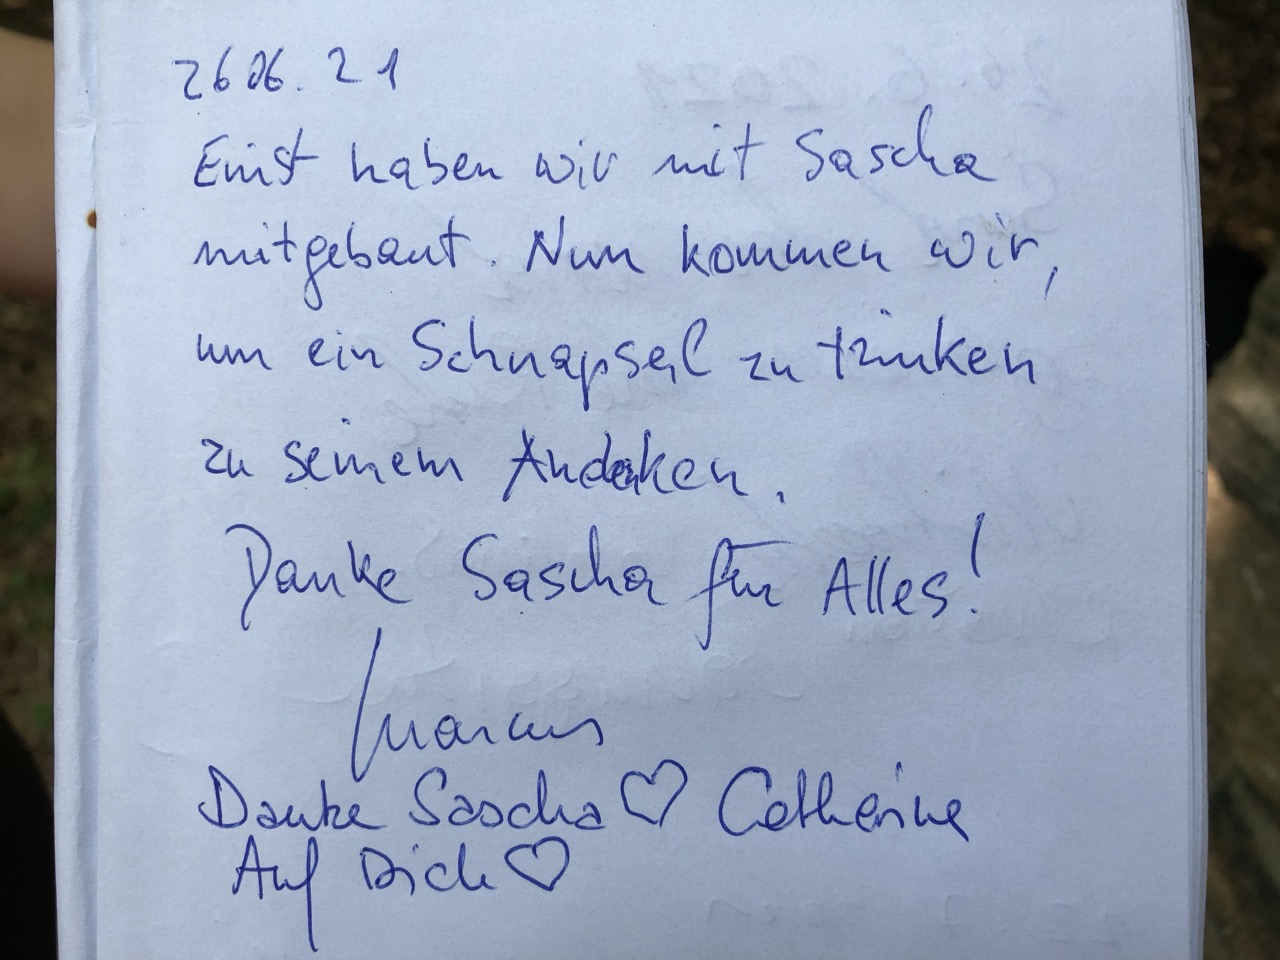 2606.21
Einst haben wir mit Sascha
mitgebaut. Nun kommen wir,
um ein Schnapserl zu trinken
zu seinem Andenken.
Danke Sascha für Alles!
Marcus
Danke Sascha ♡ Catherine
Auf Dich ♡